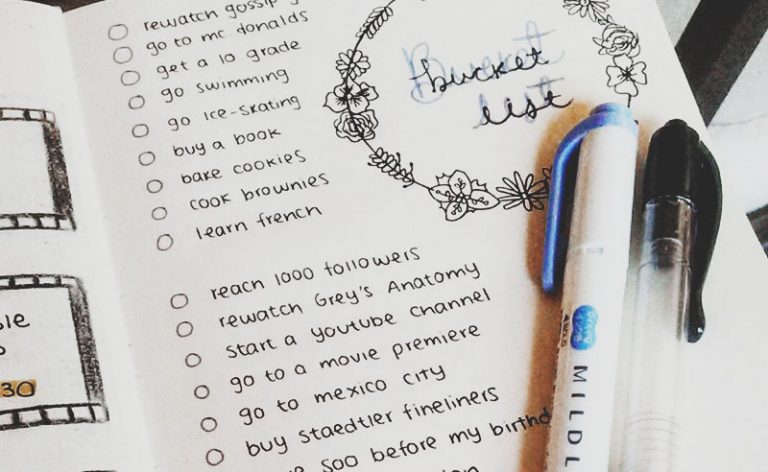 rewatch gossip
go to mc donalds
get a 10 grade
go swimming
go ice-skating
buy a book
bake cookies
cook brownies
learn french
bucket
list
reach 1000 followers
rewatch Grey's Anatomy
start a youtube channel
go to a movie premiere
go to mexico city
buy staedtler fineliners
500 before my birthd
30
MILDL